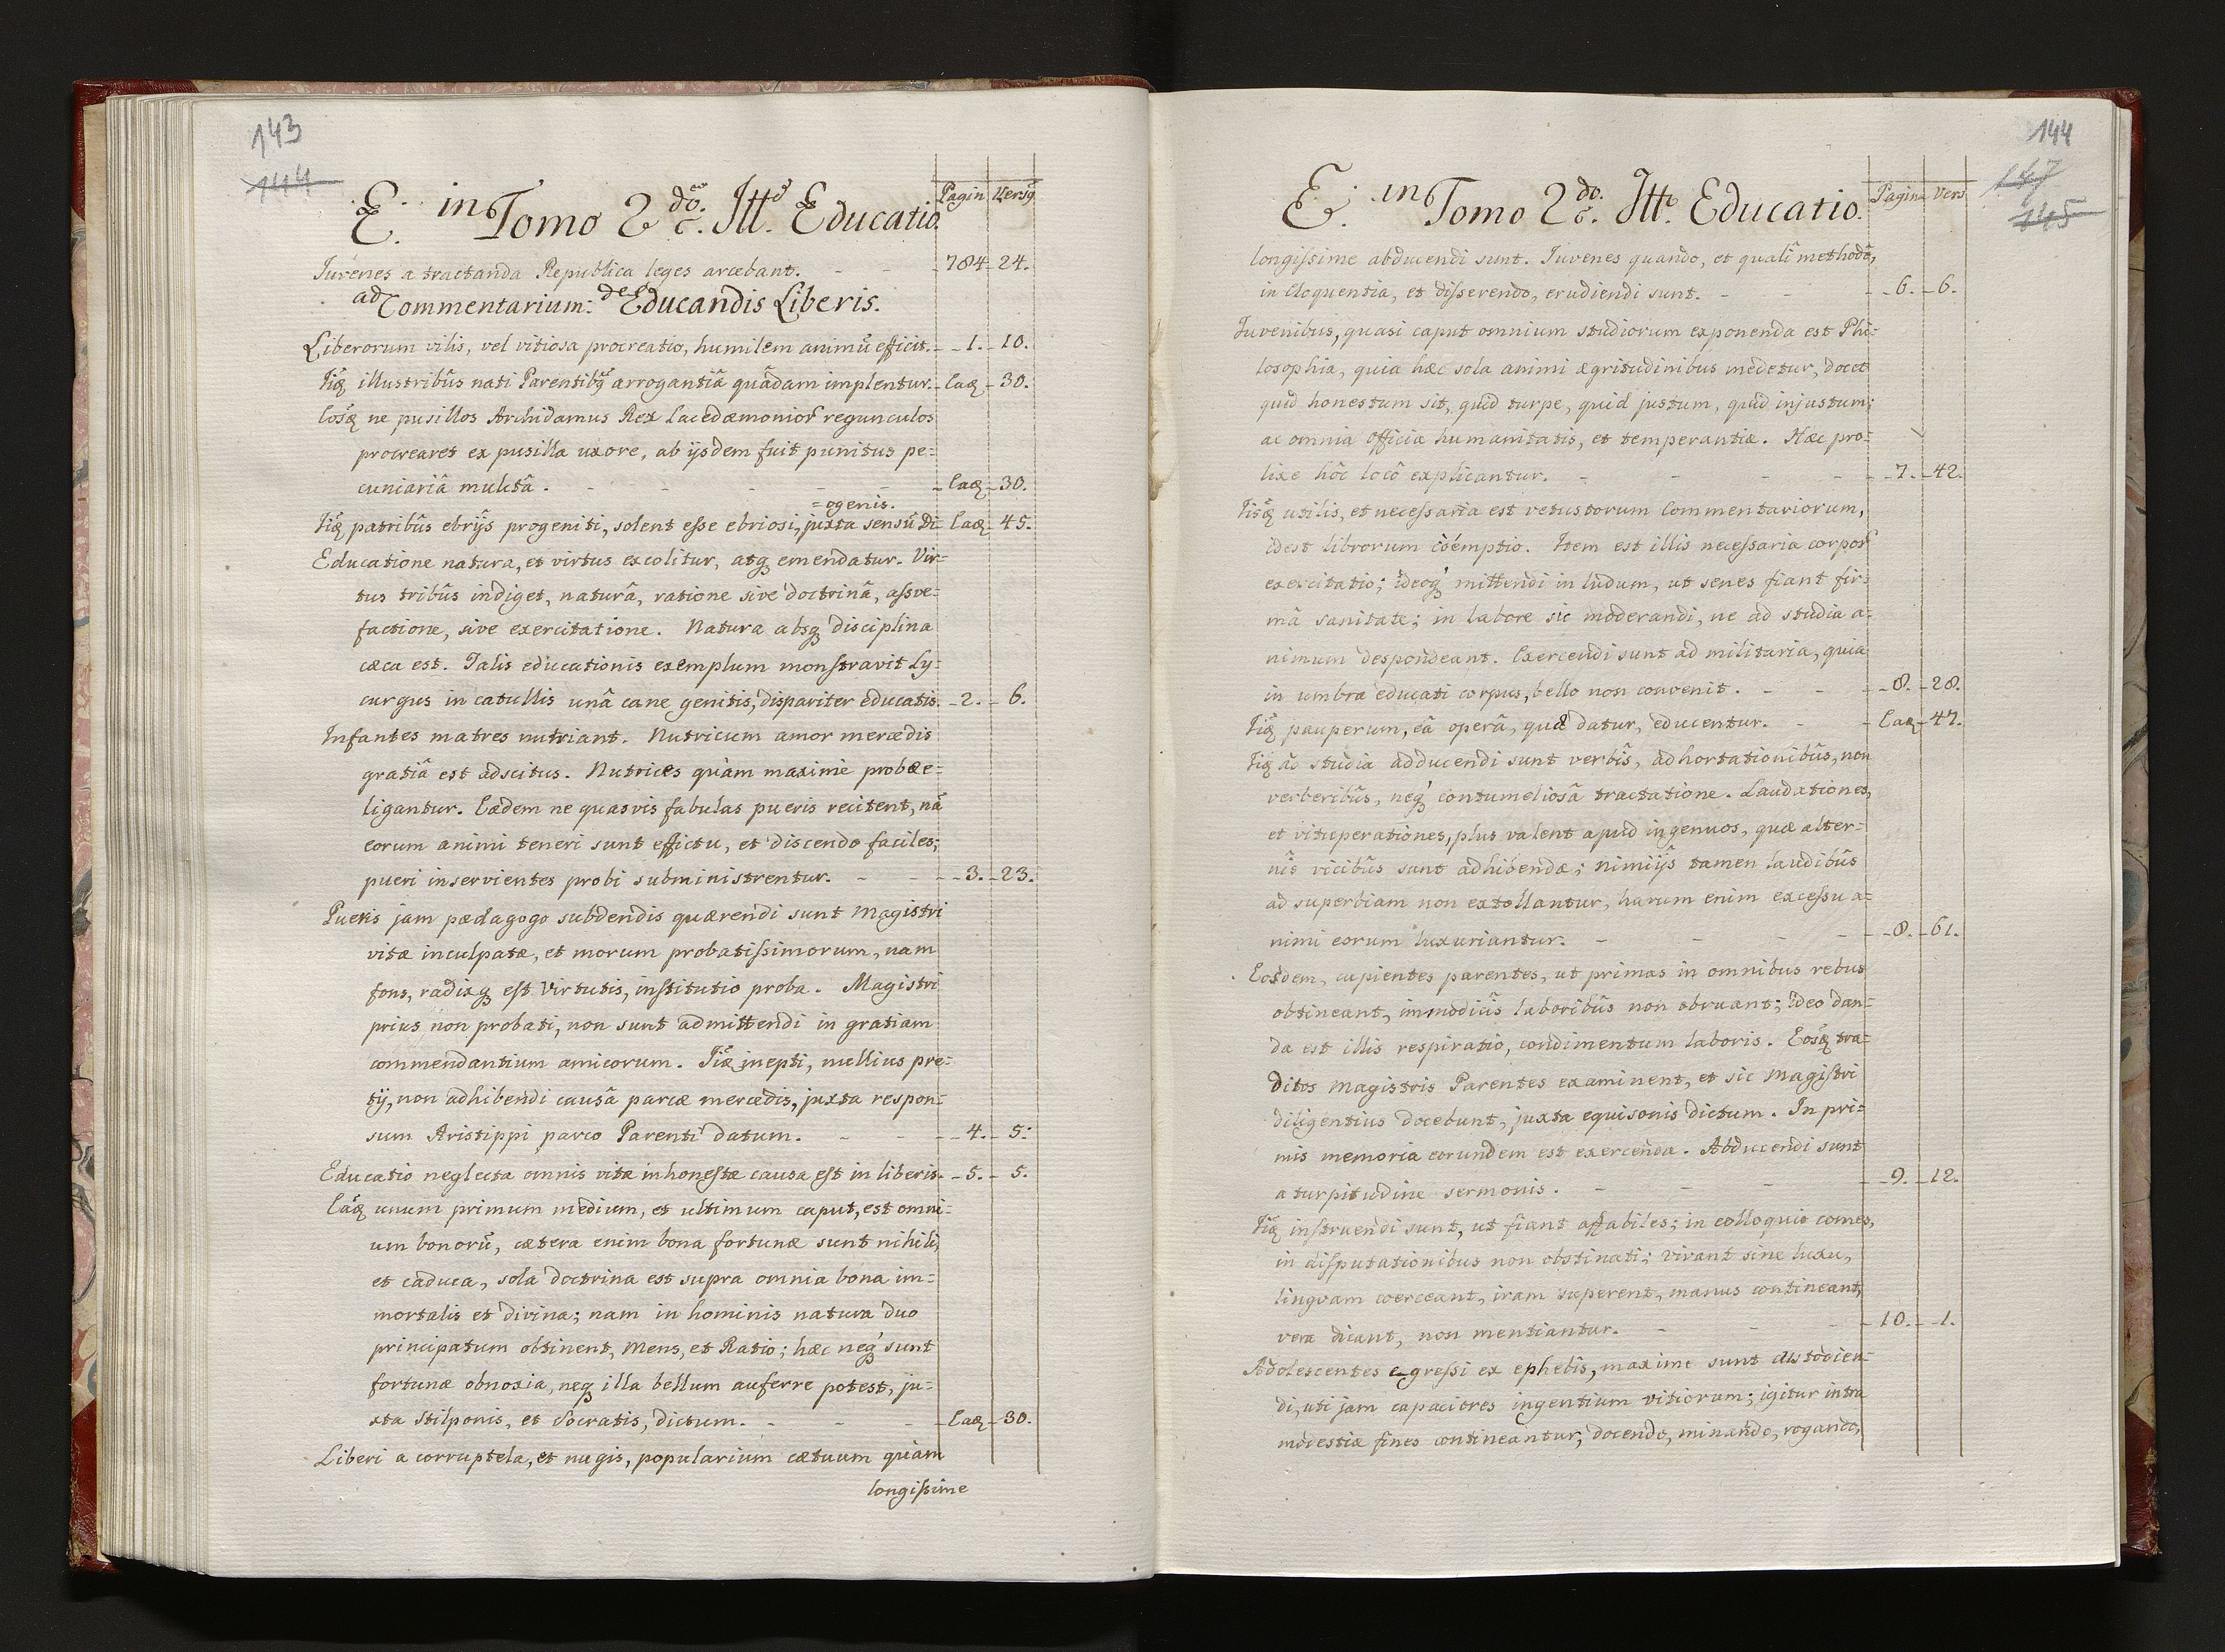 143
144
E. in Tomo 2do. c. Ittò Educatio.
Pagin Versq
Iuvenes a tractanda Republica leges arcebant. - - 784. 24.
ad Commentarium: de Educandis Liberis.
Liberorum vilis, vel vitiosa procreatio, humilem animũ efficit. - 1. - 10.
Iiq illustribûs nati Parentibq arrogantiâ quâdam implentur. - Eaq - 30.
Eosq ne pusillos Archidamus Rex Lacedæmonior regunculos
procrearet ex pusilla uxore, ab ijsdem fuit punitus pe=
cuniariâ mulctâ. - - - - - Eaq - 30.
=ogenis.
Iiq patribûs ebrijs progeniti, solent eſse ebriosi, juxta sensũ Di= Eaq - 45.
Educatione natura, et virtus excolitur, atq emendatur. Vir=
tus tribûs indiget, naturâ, ratione sive doctrinâ, aſsve=
factione, sive exercitatione. Natura absq disciplina
cæca est. Talis educationis exemplum monſtravit Ly=
curgus in catullis unâ cane genitis, dispariter educatis. - 2. - 6.
Infantes matres nutriant. Nutricum amor mercedis
gratiâ est adscitus. Nutrices quàm maxime probæ e=
ligantur. Eædem ne quasvis fabulas pueris recitent, nã
eorum animi teneri sunt effictu, et discendo faciles;
pueri inservientes probi subministrentur. - - - 3. - 23.
Pueris jam pædagogo subdendis quærendi sunt Magistri
vitæ inculpatæ, et morum probatiſsimorum, nam
fons, radixq eſt virtutis, inſtitutio proba. Magistri
prius non probati, non sunt admittendi in gratiam
commendantium amicorum. Iiq inepti, nullius pre=
tij, non adhibendi causâ parcæ mercedis, juxta respon=
sum Aristippi parco Parenti datum. - - - 4. - 5:
Educatio neglecta omnis vitæ inhoneſtæ causa eſt in liberis. - 5. - 5.
Eaq unum primum medium, et ultimum caput, est omni=
um bonorũ, cætera enim bona fortunæ sunt nihili,
et caduca, sola doctrina est supra omnia bona im=
mortalis et divina; nam in hominis natura duo
principatum obtinent, Mens, et Ratio; hæc neq sunt
fortunæ obnoxia, neq illa bellum auferre potest, ju=
xta Stilponis, et Socratis, dictum. - - - Eaq - 30.
Liberi a corruptela, et nugis, popularium cætuum quàm
longiſsime
144
147
145
E. in Tomo 2do. c. Itto. Educatio.
Pagina Vers
longiſsime abducendi sunt. Iuvenes quando, et quali methodô,
in Eloquentia, et diſserendo, erudiendi sunt. - - - 6. - 6.
Iuvenibus, quasi caput omnium studiorum exponenda est Phi=
losophia, quia hæc sola animi ægritudinibus medetur, docet
quid honestum sit, quid turpe, quid justum, quid injustum;
ac omnia officia humanitatis, et temperantiæ. Hæc pro=
lixe hôc locô explicantur. - - - - 7. - 42.
Iisq utilis, et neceſsaria est vetustorum Commentariorum,
idest librorum coëmptio. Item est illis neceſsaria corpor
exercitatio; ideoq mittendi in ludum, ut senes fiant fir=
mâ sanitate; in labore sic moderandi, ne ad studia a=
nimum despondeant. Exercendi sunt ad militaria, quia
in umbra educati corpus, bello non convenit. - - - 8. - 28.
Iiq pauperum, eâ operâ, quæ datur, educentur. - - Eaq - 47.
Iiq ad studia adducendi sunt verbis, adhortationibûs, non
verberibûs, neq contumeliosâ tractatione. Laudationes,
et vituperationes, plus valent apud ingenuos, quæ alter=
nîs vicibûs sunt adhibendæ; nimijs tamen laudibûs
ad superbiam non extollantur, harum enim exceſsu a=
nimi eorum luxuriantur. - - - - 8. - 61.
Eosdem, cupientes parentes, ut primas in omnibus rebus
obtineant, immodicis laboribûs non obruant; ideo dan=
da est illis respiratio, condimentum laboris. Eosq tra=
ditos Magistris Parentes examinent, et sic Magiſtri
diligentius docebunt, juxta equisonis dictum. In pri=
mis memoria eorundem est exercenda. Abducendi sunt
a turpitudine sermonis. - - - - 9. - 12.
Iiq inſtruendi sunt, ut fiant affabiles; in colloquio comes,
in diſputationibus non obstinati; vivant sine luxu,
linguam coerceant, iram superent, manus contineant,
vera dicant, non mentiantur. - - - - 10. - 1.
Adolescentes egreſsi ex ephebîs, maxime sunt custodien=
di, uti jam capaciores ingentium vitiorum; igitur intra
modestiæ fines contineantur, docendo, minando, rogando,